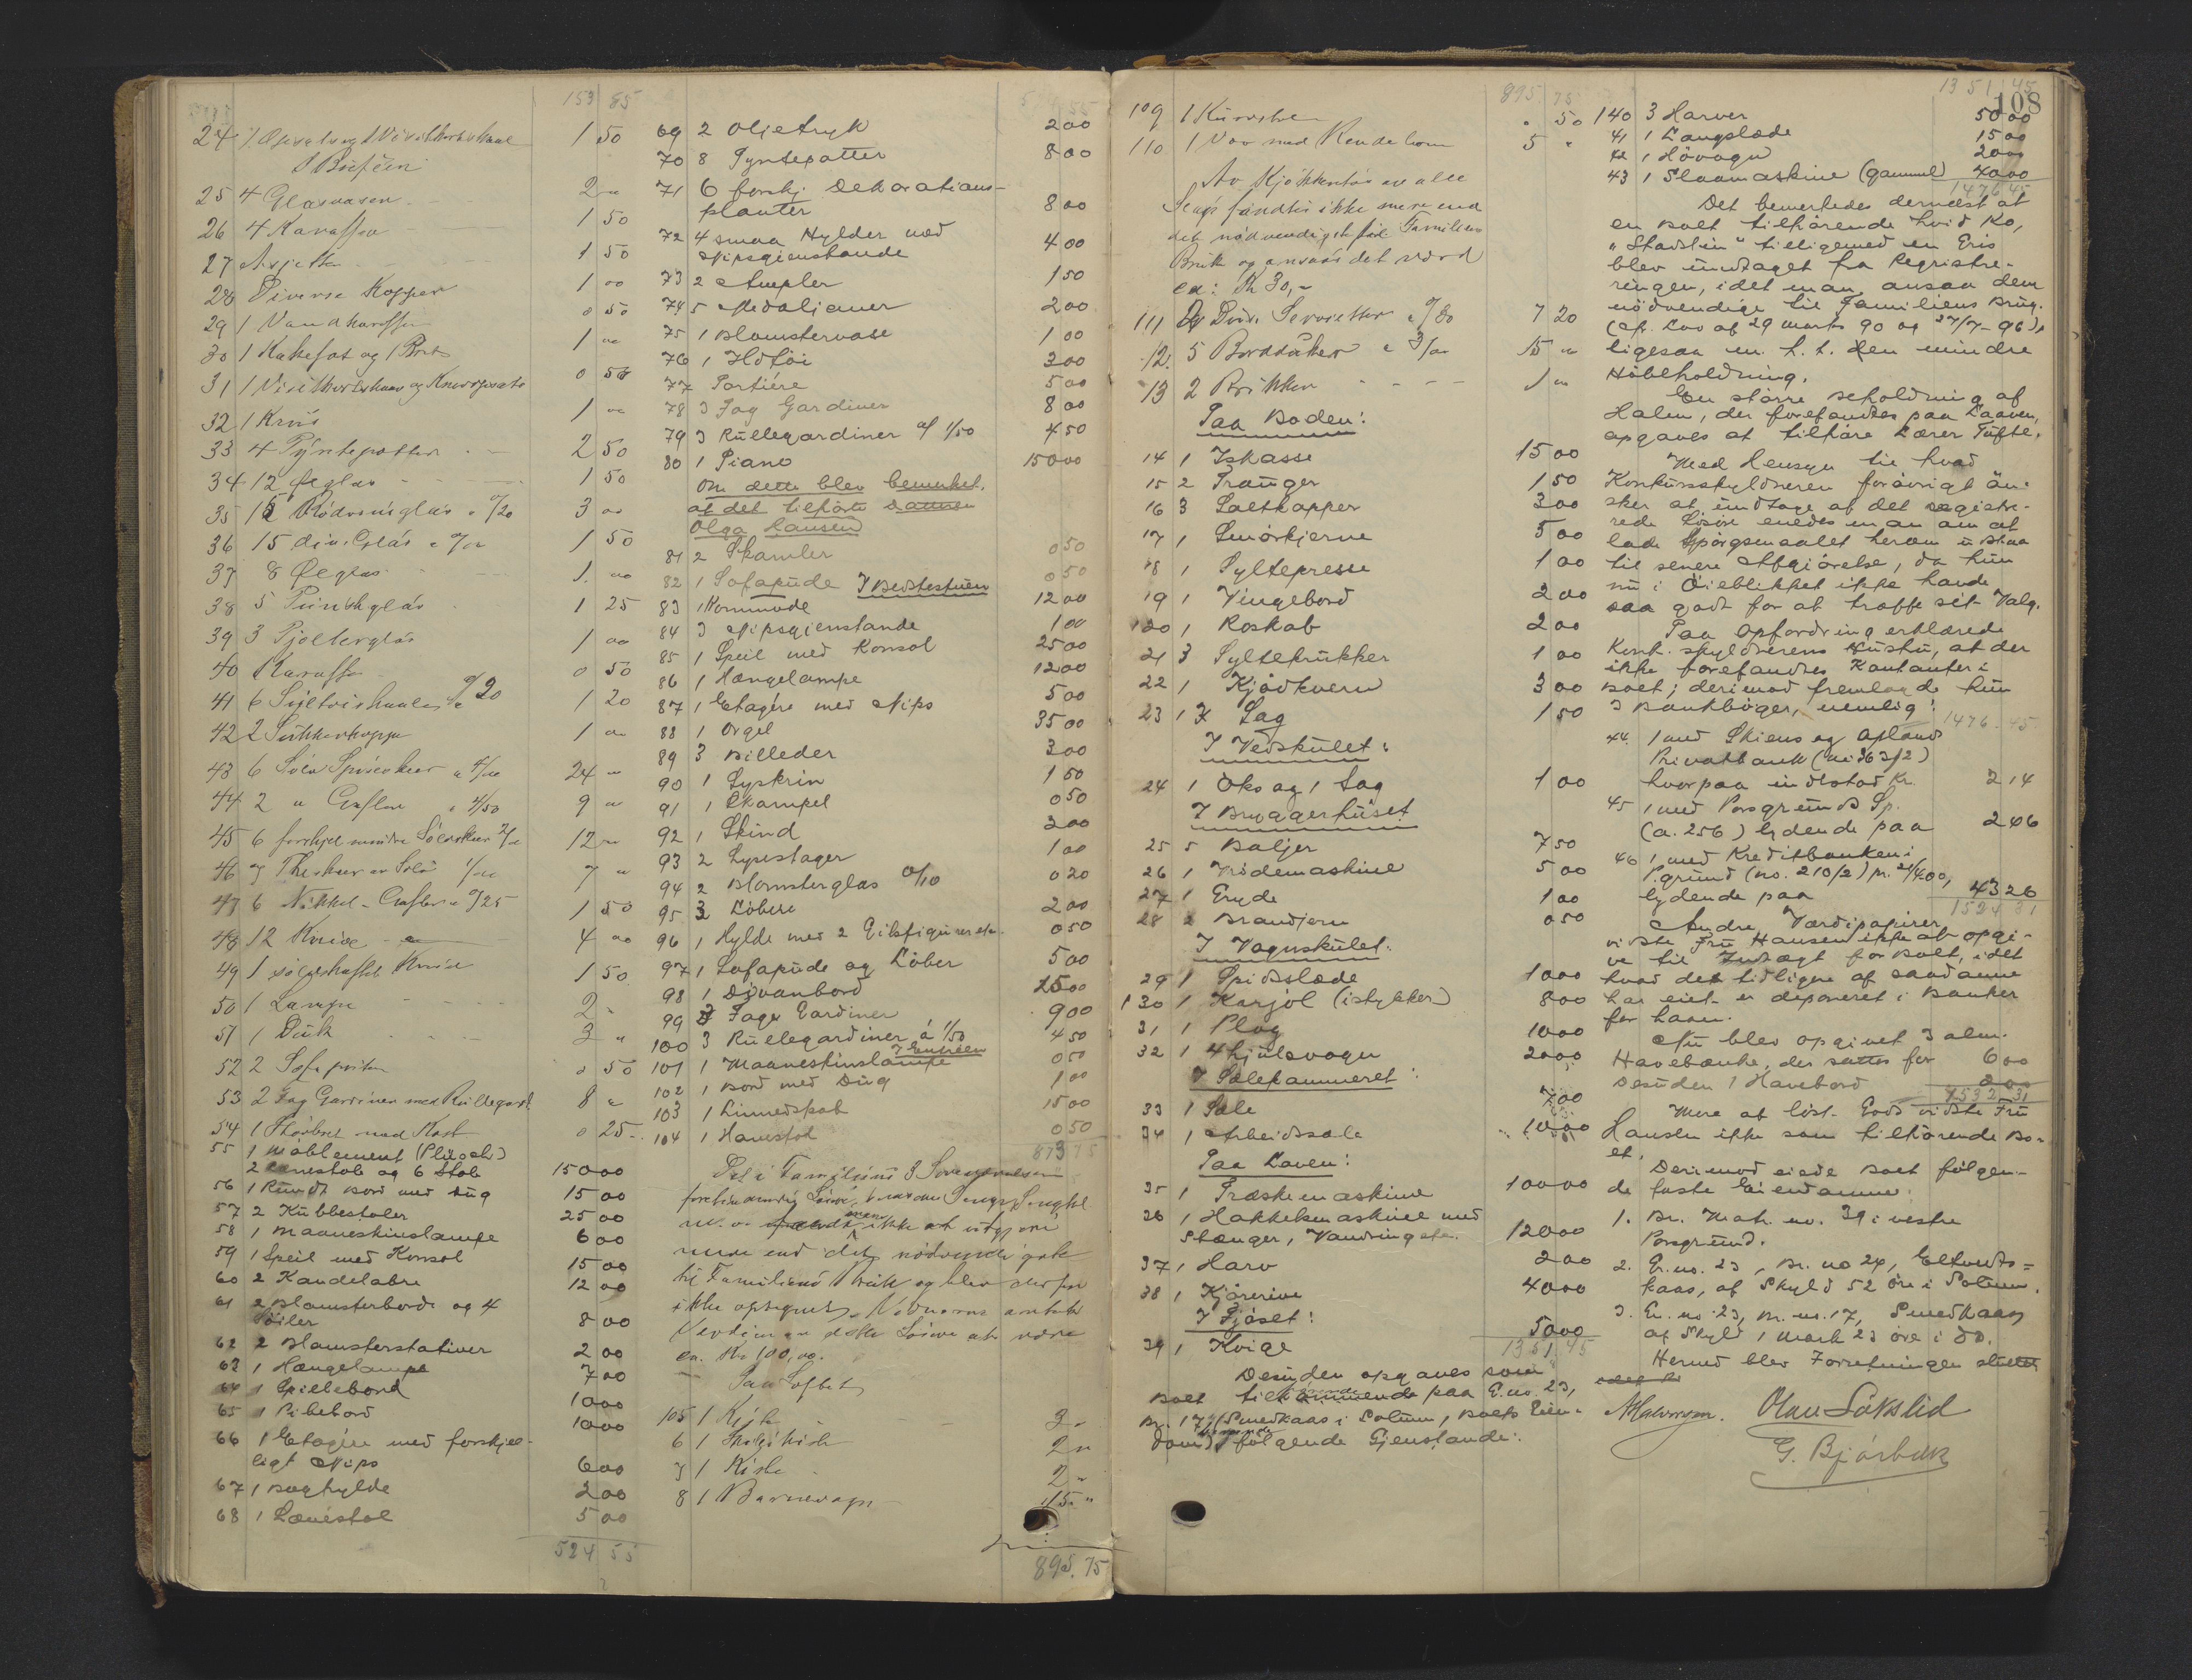 153 85
24 1 Visitkortskaal 1 50
I Buffeen
25 4 Glasvasen 2 "
26 4 Karaffer 1 50
27 Asjetter 1 50
28 Diverse Kopper 1 00
29 1 Vandkaraffel 0 50
30 1 Kakefat og 1 Bret 1 "
31 1 Visitkortskaal og 0 50
32 1 Krus 1 "
33 4 Pyntepotter 2 50
34 12 Ølglas 1 50
35 15 Rødvinsglas a 0/20 3 00
36 15 div. Glas 1 50
37 8 Ølglas 1 00
38 5 Punshglas 1 25
39 3 Pjolterglas 1 00
40 Karaffer 0 50
41 6 Syltetøiskaaler a 0/20 1 20
42 2 Sukkerkopper 1 00
43 6 Sølv Spiseskeer a 4/00 24 "
44 2 " Gafler a 4/50 9 "
45 6 forskjel mindre Sølvskeer 2/00 12 "
46 7 Theskeer av Sølv 1/00 7 "
47 6 Nikkel-Gafler a 0/25 1 50
48 12 Knive 4 00
49 1 sølvskaftet Kniv 1 50
50 1 Lampe 2 "
51 1 Duk 3 "
52 2 Sofaputer 0 50
53 2 Fag Gardiner med Rullegard. 8 "
54 1 0 25
55 1 Møblement (Plüsch)
2 Lænestole og 6 Stole 150 00
56 1 Rundt Bord med Dug 15 00
57 2 Kubbestoler 25 00
58 1 Maaneskinslampe 6 00
59 1 Speil med Konsol 15 00
60 2 Kandelabre 12 00
61 2 Blomsterborde og 4
Søiler 8 00
62 2 Blomsterstativer 2 00
63 1 Hængelampe 7 00
64 1 Spillebord 10 00
65 1 Pibebord 10 00
66 1 Etagére med forskjel-
ligt Nips 6 00
67 1 Boghylde 2 00
68 1 Lænestol 5 00
524 55
69 2 Oljetryk 2 00
70 8 Pyntepotter 8 00
71 6 forskj. Dekorations-
planter 8 00
72 4 smaa Hylder med
Nipsgjenstande 4 00
73 2 Ampler 1 50
74 5 Medaljoner 2 00
75 1 Blomstervase 1 00
76 1 3 00
77 Portiére 5 00
78 3 Fag Gardiner 8 00
79 3 Rullegardiner af 1/50 4 50
80 1 Piano 150 00
Om dette blev bemerket,
at det tilhørte Datteren
Olga Hansen
81 2 Skamler 0 50
82 1 Sofapude 0 50
I Bedstestuen
83 1 Kommode 12 00
84 3 Nipsgjenstande 1 00
85 1 Speil med Konsol 25 00
86 1 Hængelampe 12 00
87 1 Etagére med Nips 5 00
88 1 Orgel 35 00
89 3 Billeder 3 00
90 1 Syskrin 1 50
91 1 Skampel 0 50
92 1 Skind 3 00
93 2 Lysestager 1 00
94 2 Blomsterglas 0/10 0 20
95 3 Løbere 2 00
96 1 Hylde med 2 Gibsfigurer etc. 0 50
97 1 Sofapude og Løber 5 00
98 1 Divanbord 25 00
99 3 Fage Gardiner 9 00
100 3 Rullegardiner á 1/50 4 50
I Entreen
101 1 Maaneskinslampe 0 50
102 1 Bord med Dug 1 00
103 1 Linnedskab 15 00
104 1 Havestol 0 50
873 75
Det i Familiens 3 Soveværelser
men ikke at utgjøre
mere end det nødvendigste
til Familiens bruk og blev derfor
ikke optegnet. Vidnerne antok
Verdien av dette Løsøre at være
ca. Kr 100,00.
Paa Loftet
105 1 Kiste 3 "
6 1 2 "
7 1 Kiste 2 "
8 1 Barnevogn 15 "
895.75
895 75
109 1 " 50
110 1 Vov med Rendebom 5 "
Av Kjøkkentøi av alle
Slags fandtes ikke mere end
det nødvendigste for Familiens
Bruk og ansaaes det værd
ca: Kr 30,-
111 Div. Servietter a 0/80 7 20
12. 5 Borddúker a 3/00 15 "
13 2 Brikker 1 "
Paa Boden:
14 1 Iskasse 15 00
15 2 Trauger 1 50
16 3 Saltkopper 3 00
17 1 Smørkjerne 5 00
18 1 Syltepresse 1 00
19 1 Vingebord 2 00
120 1 Roskab 2 00
21 3 Syltekrukker 1 00
22 1 Kjødkvern 3 00
23 1 Sag 1 50
I Vedskulet:
24 1 Øks og 1 Sag 1 00
I Bryggerhuset
25 5 Baljer 7 50
26 1 Vridemaskine 5 00
27 1 Gryde 1 00
28 2 Brandjern 0 50
I Vognskulet:
29 1 Spidsslæde 10 00
130 1 Karjol (istykker) 8 00
31 1 Plog 10 00
32 1 4hjulsvogn 20 00
I Selekammeret:
33 1 Sele 7 00
34 1 Arbeidssele 10 00
Paa Laven:
35 1 Træskemaskine 100 00
36 1 Hakkelsmaskine med
Stænger, Vandring etc. 120 00
37 1 Harv 2 00
38 1 Kjørerive 40 00
I Fjøset:
39 1 Kvige 50 00
1351 45
Desuden opgaves som
Boet tilhørende paa G. no. 23,
Br. 17 (Smedkaas i Solum, Boets Eien-
dom) følgende Gjenstande:
1351 45
108
140 3 Harver 50 00
41 1 Langslæde 15 00
42 1 Høvogn 20 00
43 1 Slaamaskine (gammel) 40 00
1476 45
Det bemerkedes dernæst at
en Boet tilhørende hvid Ko,
"Stadslin" tilligemed en Gris
blev undtaget fra Registre-
ringen, idet man ansaa dem
nödvendige til Familiens Brug.
(cf. Lov af 29 marts 90 og 27/7-96),
ligesaa m. h. t. den mindre
Høbeholdning.
En større Beholdning af
Halm, der forefandtes paa Laaven,
opgaves at tilhøre Lærer Tufte.
Med Hensyn til hvad
Konkursskyldneren forøvrigt øn-
sker at undtage af det registre-
rede Løsøre enedes man om at
lade Spørgsmaalet herom ustaa
til senere Afgjørelse, da hun
nu i Øieblikket ikke havde
saa godt for at træffe sit Valg.
Paa Opfordring erklærede
Konk. skyldnerens Hustru, at der
ikke forefandtes Kontanter i
Boet; derimod fremlagde hun
3 Bankbøger, nemlig: 1476.45
44. 1 med Skiens og Oplands
Privatbank (no 363/2)
hvorpaa indestod Kr. 2 14
45 1 med Porsgrunds Sp.
(a. 256) lydende paa 2 46
46 1 med Kreditbanken i
P.grund (no. 210/2) pr. 21/4 00,
lydende paa 43 26
1524 31
Andre Værdipapirer
vidste Fru Hansen ikke at opgi-
ve til Indtægt for Boet, idet
hvad det tidligere af saadanne
har eiet er deponeret i Banker
for Laan.
Nu blev opgivet 3 alm.
Havebænke, der sattes for 6 00
Desuden 1 Havebord 2 00
1532 31
Mere af løst Gods vidste Fru
Hansen ikke som tilhørende Bo-
et.
Derimod eiede Boet følgen-
de faste Eiendomme:
1. Br. Matr. no. 39 i vestre
Porsgrund.
2. Gr. no. 23, Br. no 24, Eltvedts-
kaas, af Skyld 52 øre i Solum.
3. Gr. no 23, Br. no. 17, Smedkaas
af Skyld 1 Mark 23 øre i do.
Hermed blev Forretningen sluttet
Halvorsen. Olav Lakslid
G. Bjørbæk